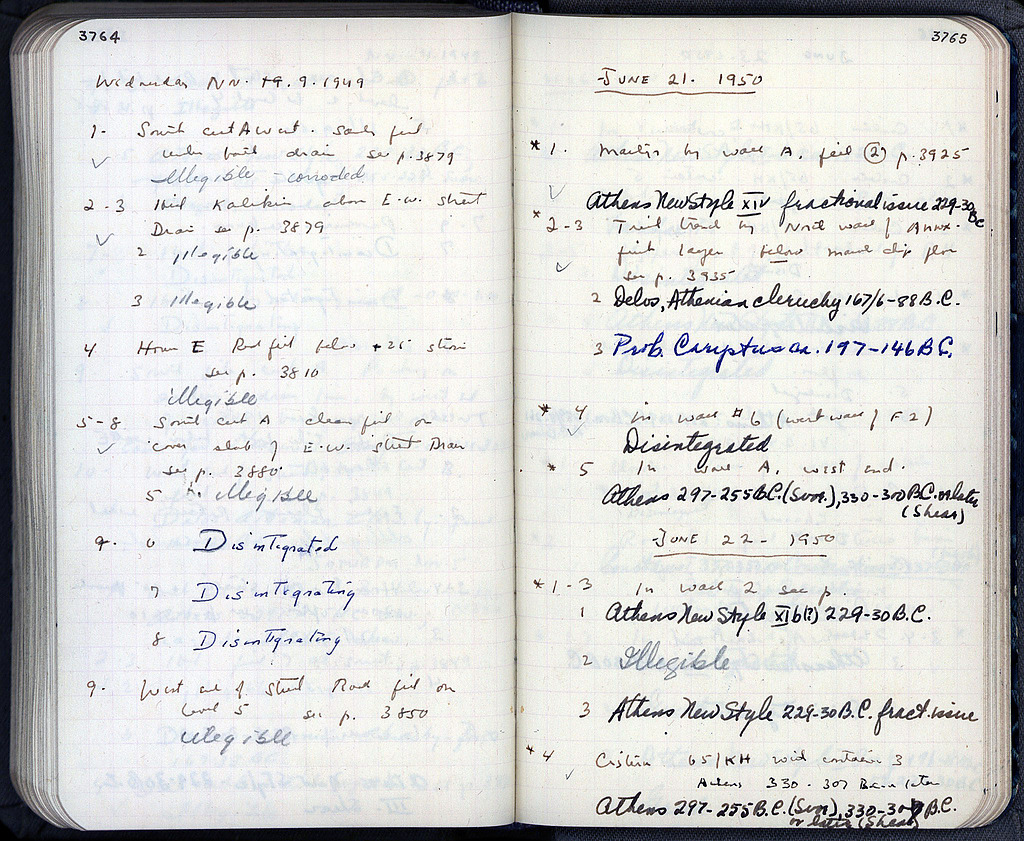 3764
Wednesday Nov. 9. 1949
1- South cut A west. Sandy fill
under built drain see p. 3879
Illegible corroded
2-3 above E-W. street
Drain see p. 3879
2 Illegible
3 Illegible
4 House E Road fill below
see p. 3810
Illegible
5-8 South cut A clean fill on
cover slab of E-W. street Drain
see p. 3880
5 Illegible
9. 6 Disintegrated
7 Disintegrating
8 Disintegrating
9. West end of street Road fill on
level 5 see p. 3850
Illegible
3765
JUNE 21. 1950
*1. by wall A, fill (2) p. 3925
Athens New Style XIV fractional issue 229-30 BC
*2-3 Trial trench by North wall / Annex.
layer below marble chip floor
see p. 3935
2 Delos, Athenian cleruchy 167/6-88 B.C.
3 Prob. Caryptus ca. 197-146 B.C.
*4 In wall # 6 (west wall / F 2)
Disintegrated
*5 In wall A, west end.
Athens 297-255 B.C. (Svor.), 330-300 B.C. or later
(Shear)
JUNE 22 - 1950
*1-3 In wall 2 see p.
1 Athens New Style XI b(?) 229-30 B.C.
2 Illegible
3 Athens New Style 229-30 B.C. fract. issue
*4 Cistern 65/KH void container 3
Athens 330-307 B.C. or later
Athens 297-255 B.C. (Svor), 330-30 B.C.
or later (Shear)